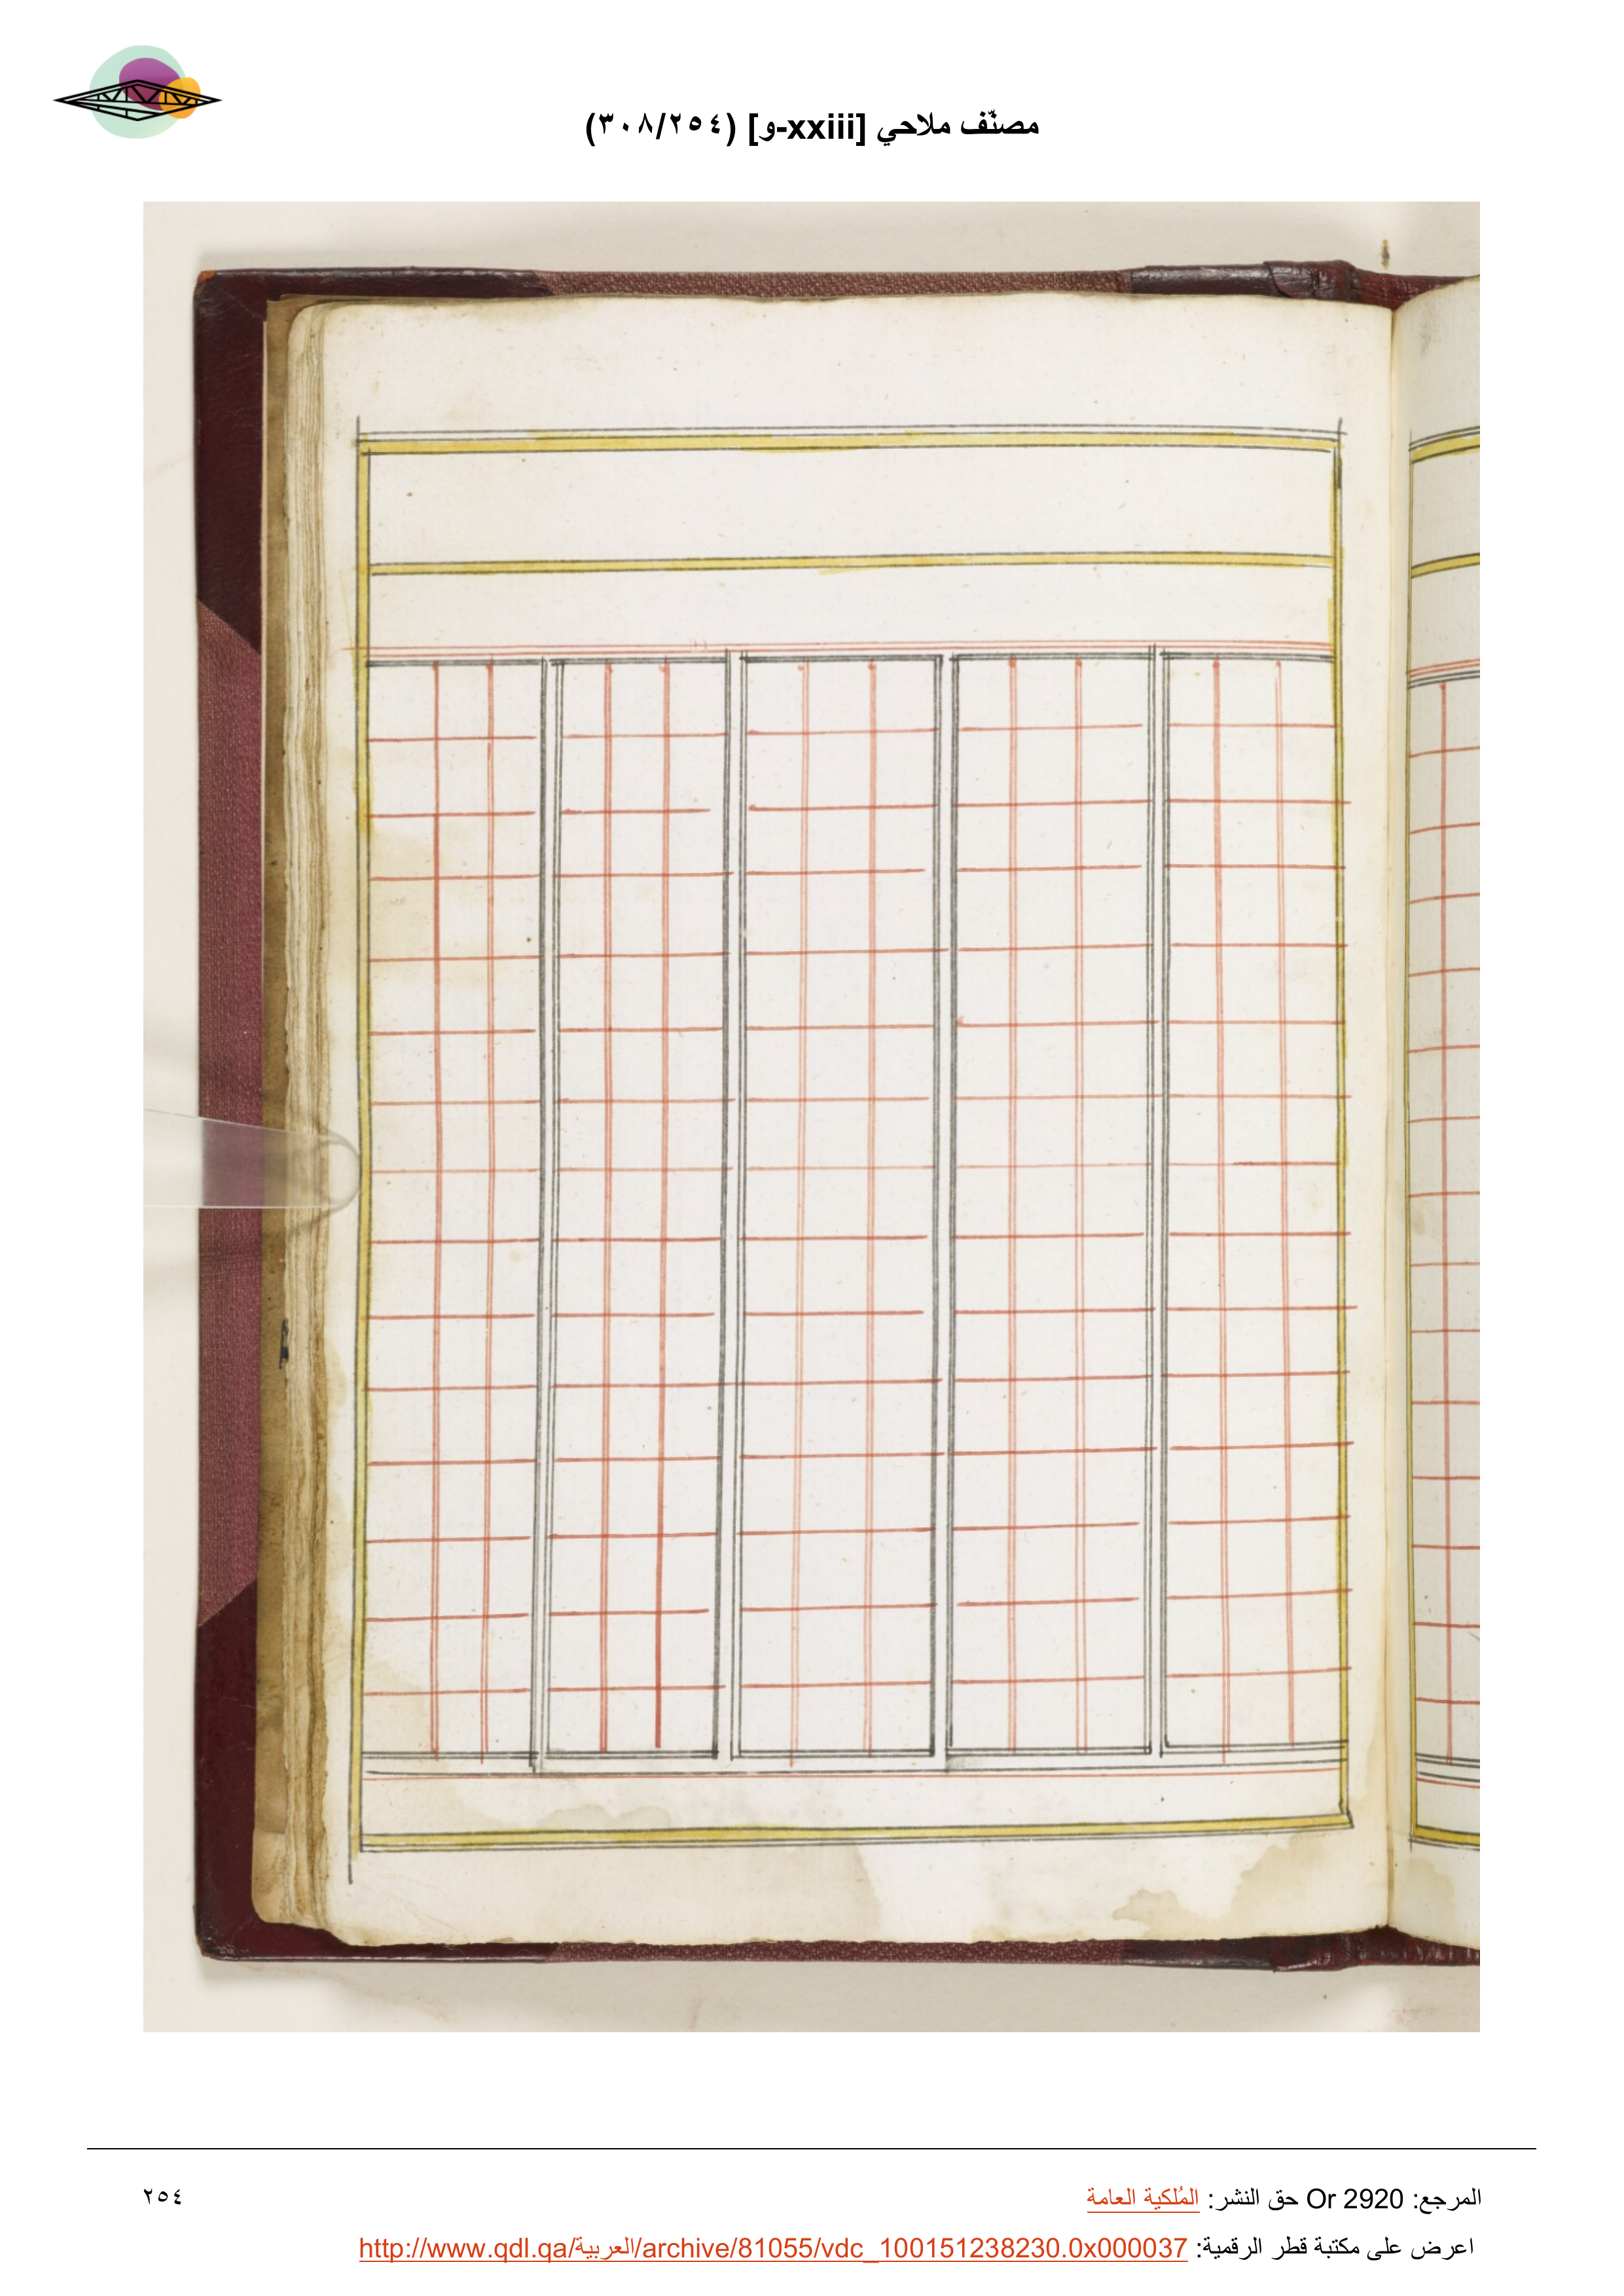 مصنّف ملاحي [xxiii-و] (٢٥٤/٣٠٨)
المرجع: Or 2920 حق النشر: المُلكية العامة
٢٥٤
اعرض على مكتبة قطر الرقمية: http://www.qdl.qa/العربية/archive/81055/vdc_100151238230.0x000037